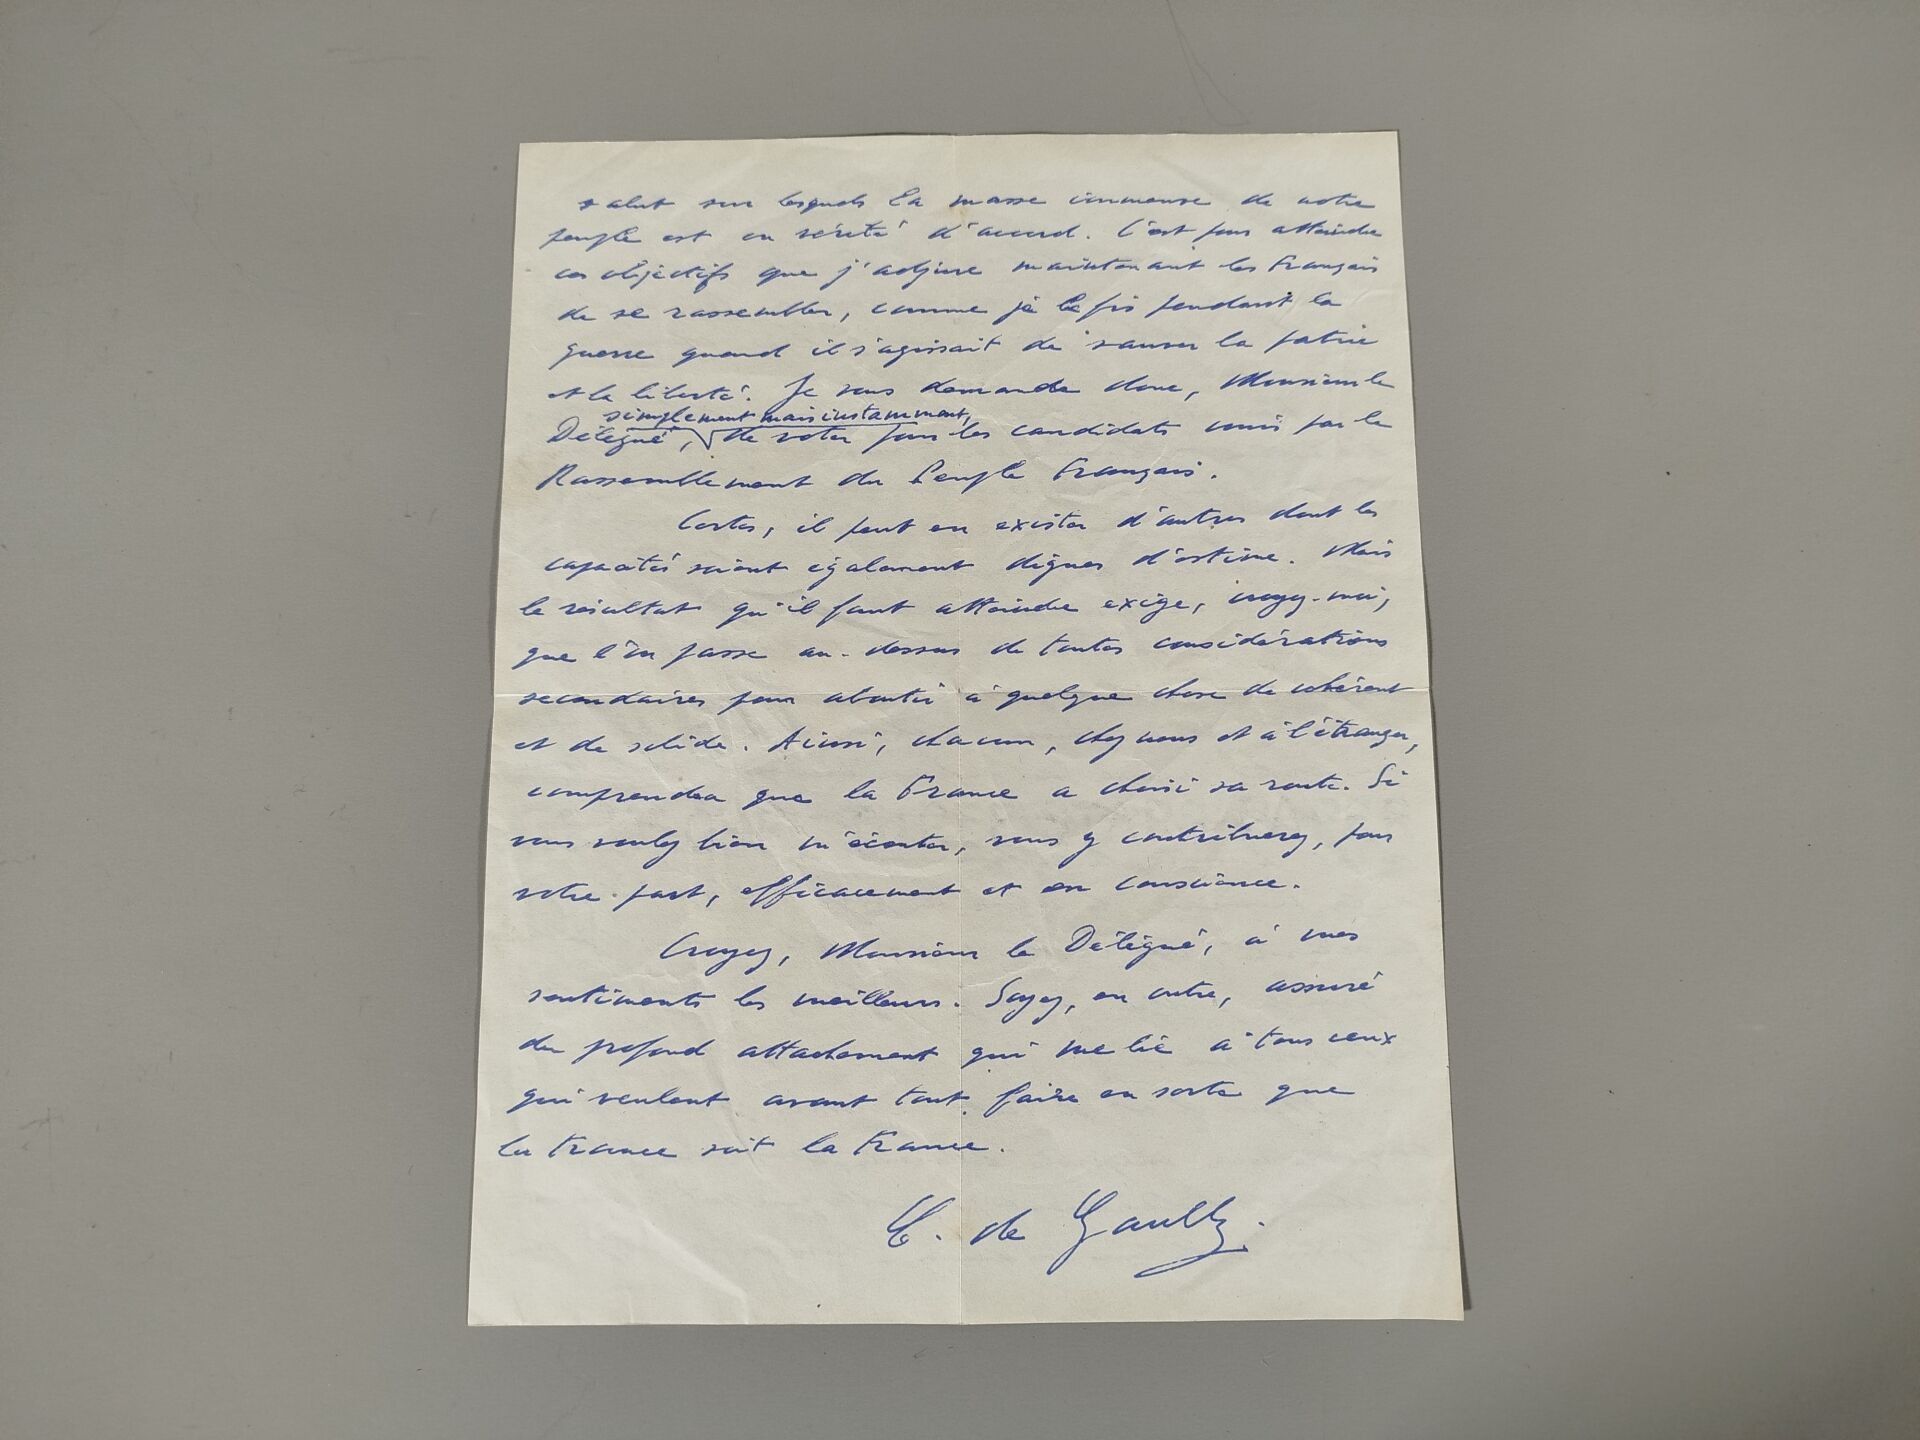 salut sur lesquels la masse immense de notre
peuple est en vérité d'accord. C'est pour atteindre
ces objectifs que j'adjure maintenant les Français
de se rassembler, comme je le fis pendant la
guerre quand il s'agissait de sauver la patrie
et la liberté. Je vous demande donc, Monsieur le
simplement mais instamment,
Délégué, de voter pour les candidats unis par le
Rassemblement du Peuple Français.
Certes, il peut en exister d'autres dont les
capacités soient également dignes d'estime. Mais
le résultat qu'il faut atteindre exige, croyez-moi,
que l'on passe au-dessus de toutes considérations
secondaires pour aboutir à quelque chose de cohérent
et de solide. Ainsi, chacun, chez nous et à l'étranger,
comprendra que la France a choisi sa route. Si
vous voulez bien m'écouter, vous y contribuerez, pour
votre part, efficacement et en conscience.
Croyez, Monsieur le Délégué, à mes
sentiments les meilleurs. Soyez, en outre, assuré
du profond attachement qui me lie à tous ceux
qui veulent avant tout faire en sorte que
la France soit la France.
C. de Gaulle.